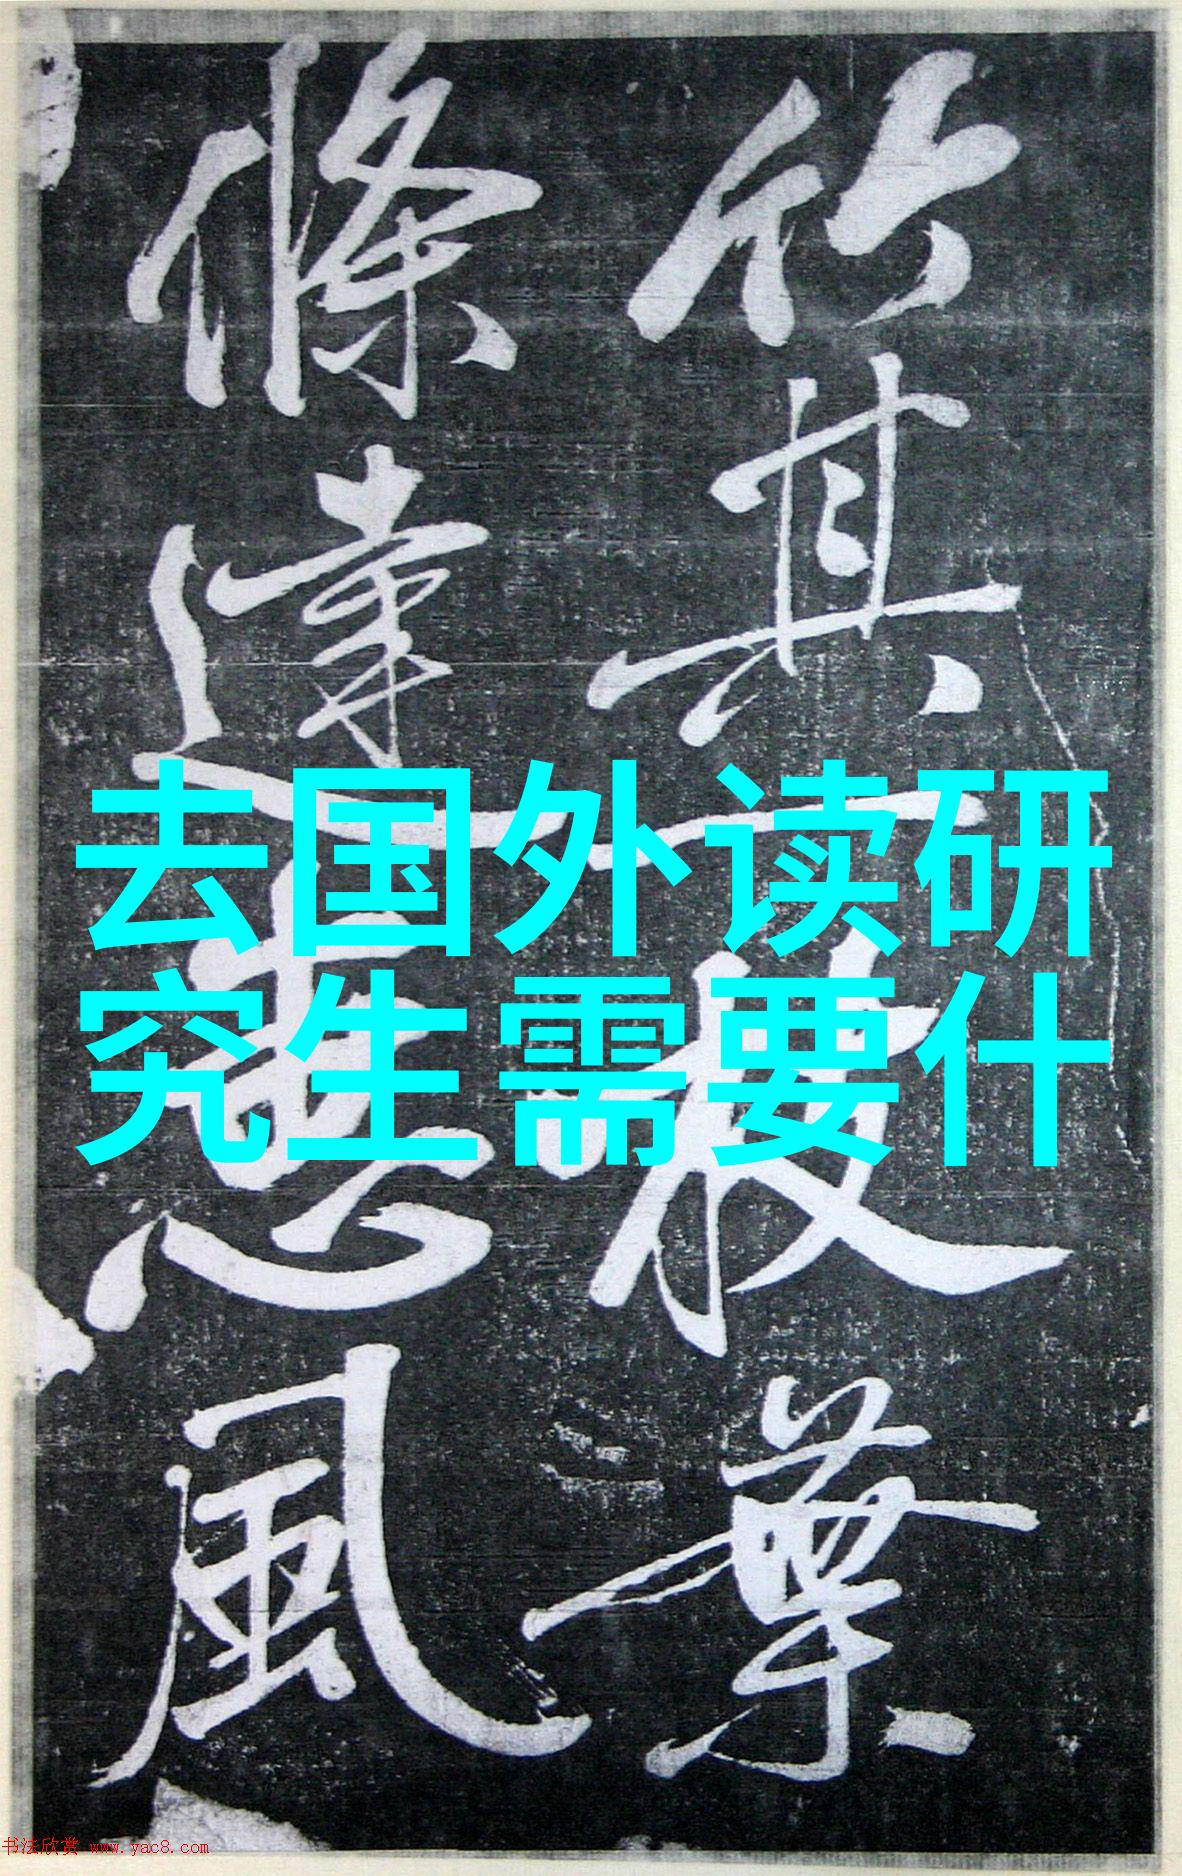 竹其一枝葉
條達惠風
去国外读研
究生需要什
书法欣赏 www.yac8.com